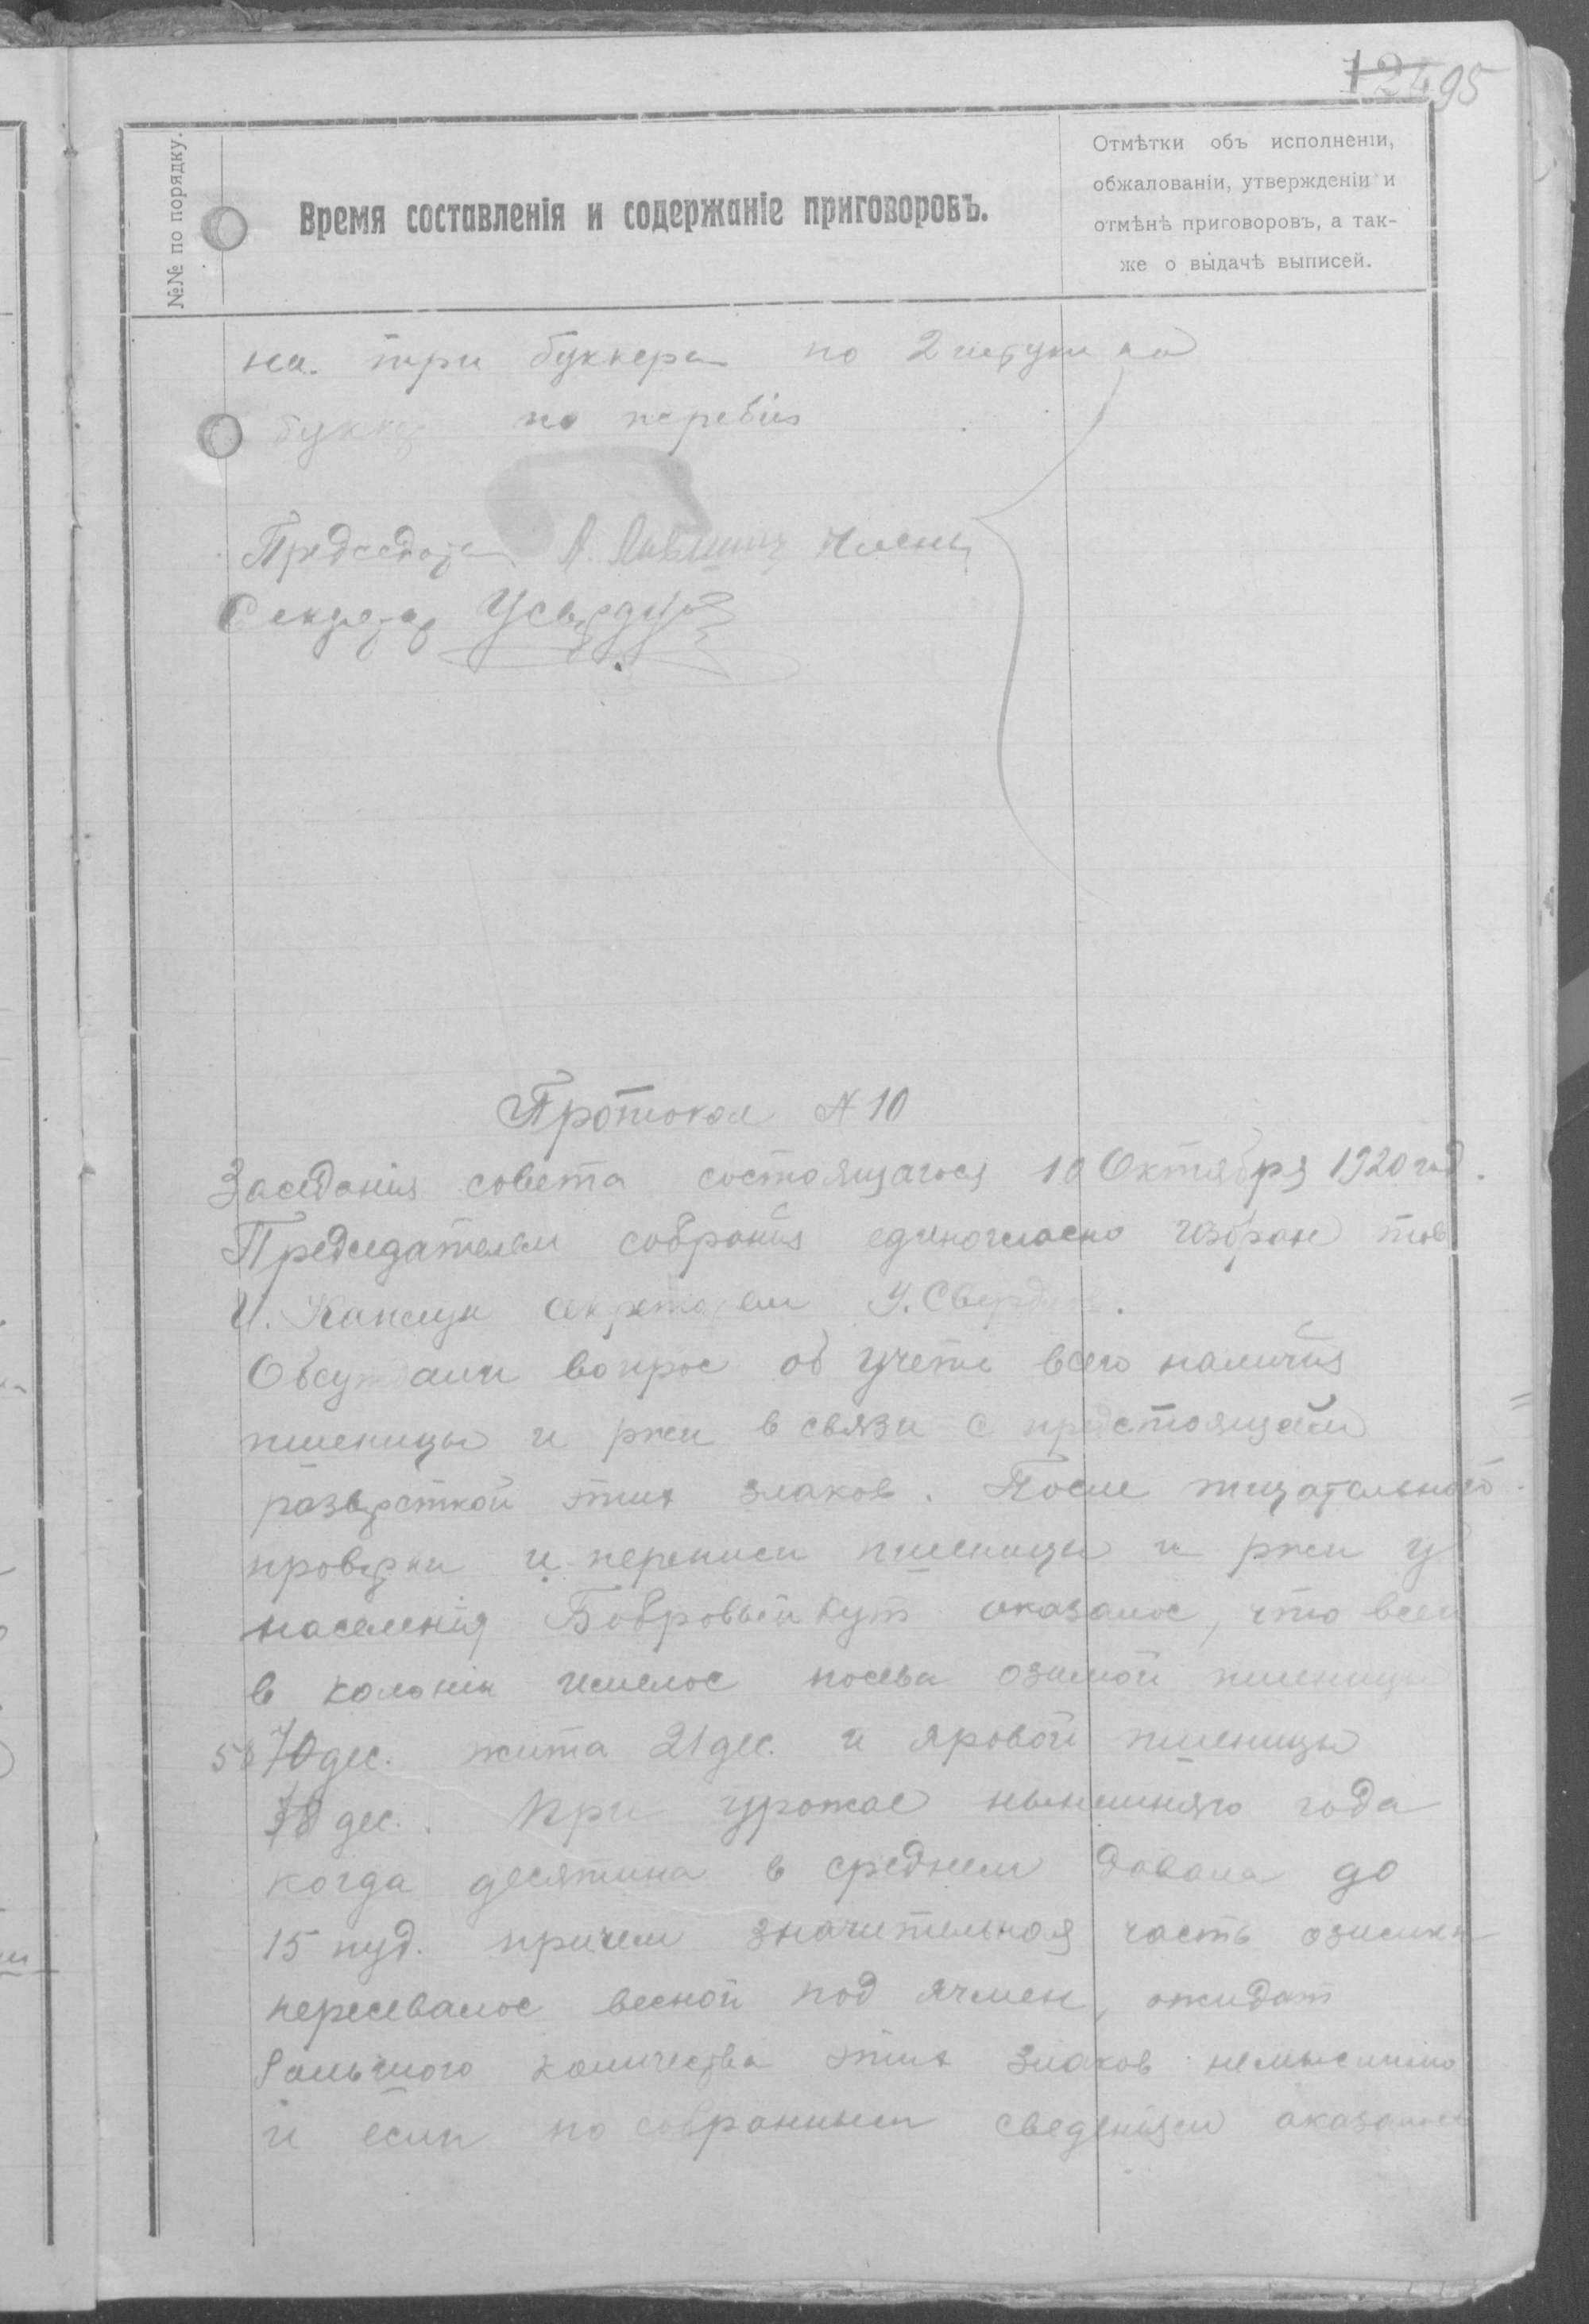 12495
№№ по порядку.
Время составленія и содержаніе приговоровъ.
Отмѣтки объ исполненіи,
обжалованіи, утвержденіи и
отмѣнѣ приговоровъ, а так-
же о выдачѣ выписей.
на три буккера по 2 штуки на
буккер по
Председатель Члены
Секретар
Протокол N 10
Заседания совета состоящагося 10 Октября 1920 год.
Председателем собрания единогласно избран тов
И. Каплун секретарем У. Сверд
Обсуждали вопрос об учете всего наличия
пшеницы и ржи в связи с предстоящей
разверсткой этих злаков. После тщательного
проверки и переписи пшеницы и ржи у
населения Бобровый Кут оказалос, что всего
в колонии имелос посева озимой пшеницы
58 70 дес. жита 21 дес. и яровой пшеницы
38 дес. При урожае нынешняго года
когда десятина в среднем давала до
15 пуд. причем значительная часть озимки
пересевалос весной под ячмен, ожидат
большого количества этих злаков немыслимо
и если по собранным сведениям оказалось